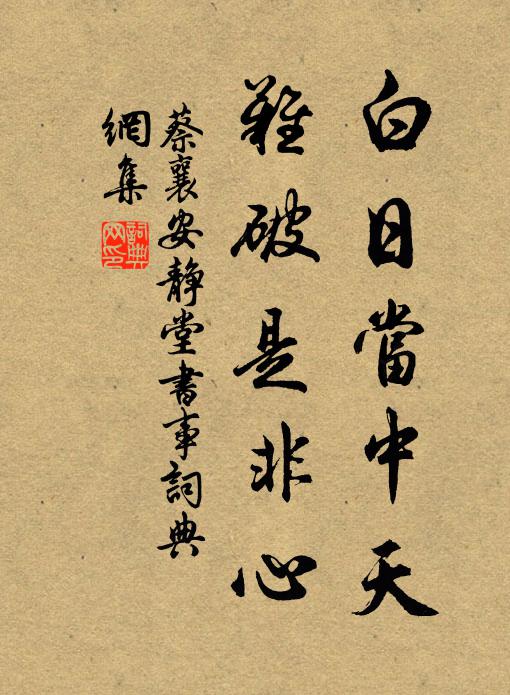 白日當中天
難破是非心
蔡襄安靜堂書事詞典
網集
詞典網印